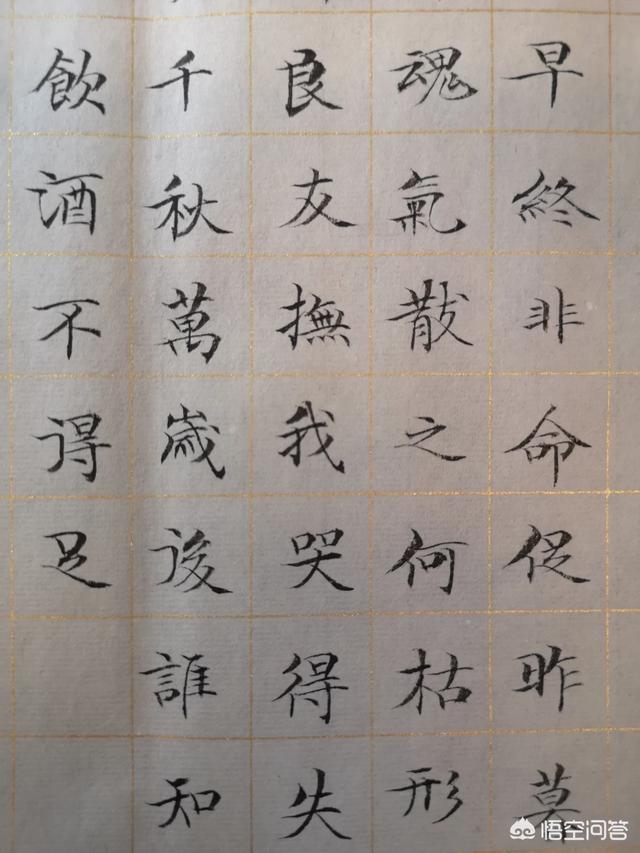 早終非命促昨暮
魂氣散之何枯形
良友撫我哭得失
千秋萬歲後誰知
飲酒不得足
悟空问答